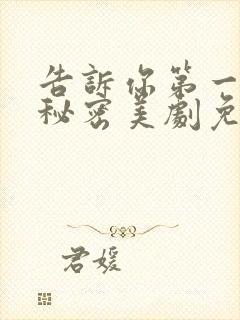 告訴你第一
秘密美劇免
君媛